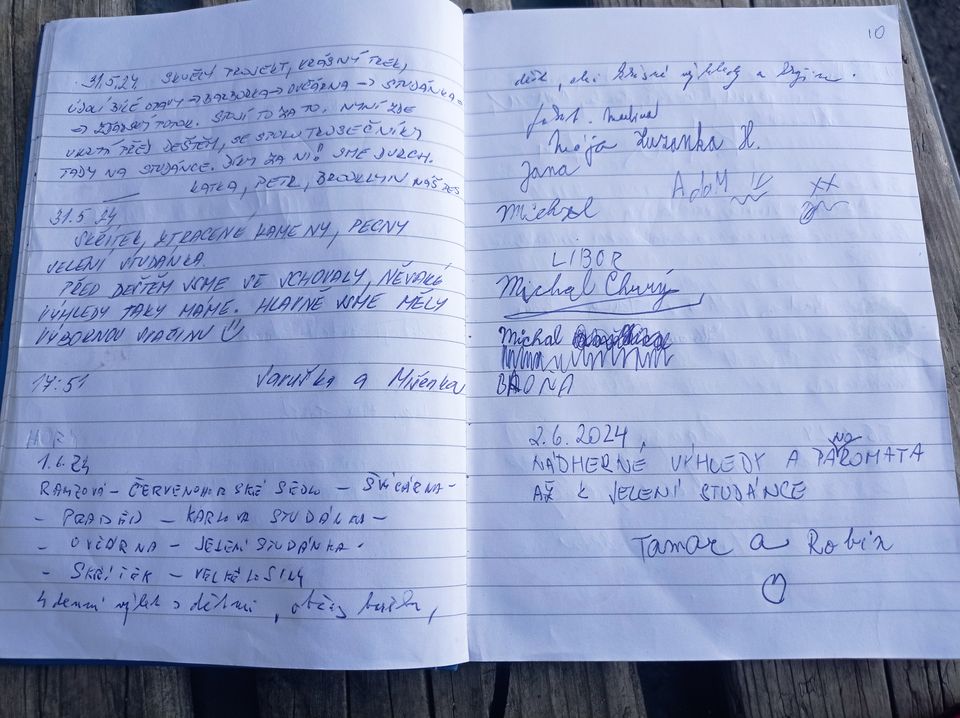 31.5.24 SKVĚLÝ PROJEKT, KRÁSNÝ TREK,
ÚDOLÍ BÍLÉ OPAVY → BARBORKA → OVČÁRNA → STUDÁNKA →
→ ŽĎÁRSKÝ POTOK. STOJÍ TO ZA TO. NYNÍ ZDE
UKRYTÍ PŘED DEŠTĚM, SE SPOLU TROSEČNÍKY
TADY NA STUDÁNCE. DÍKY ZA NI! JSME DURCH.
KATKA, PETR, BROOKLYN NÁŠ PES
31.5.24
SKŘÍTEK, ZTRACENÉ KAMENY, PECNÝ
JELENÍ STUDÁNKA
PŘED DEŠTĚM JSME SE SCHOVALY, NĚJAKÉ
VÝHLEDY TAKY MÁME. HLAVNĚ JSME MĚLY
VÝBORNOU SVAČINU
17:51 Jaruška a Mirenka
1.6.24
RAMZOVÁ - ČERVENOHORSKÉ SEDLO - ŠVÝCÁRNA -
- PRADĚD - KARLOVA STUDÁNKA -
- OVČÁRNA - JELENÍ STUDÁNKA -
- SKŘÍTEK - VELKÉ LOSINY
4 denní výlet s dětmi, občas bouřka,
10
déšť, ale krásné výhledy a
Nája Zuzanka H.
Jana
ADAM
Michal
LIBOR
Michal Churý
Michal
BRONA
2.6.2024,
NO
NÁDHERNÉ VÝHLEDY A PAROMATA
AŽ K JELENÍ STUDÁNCE
Tamar a Robin